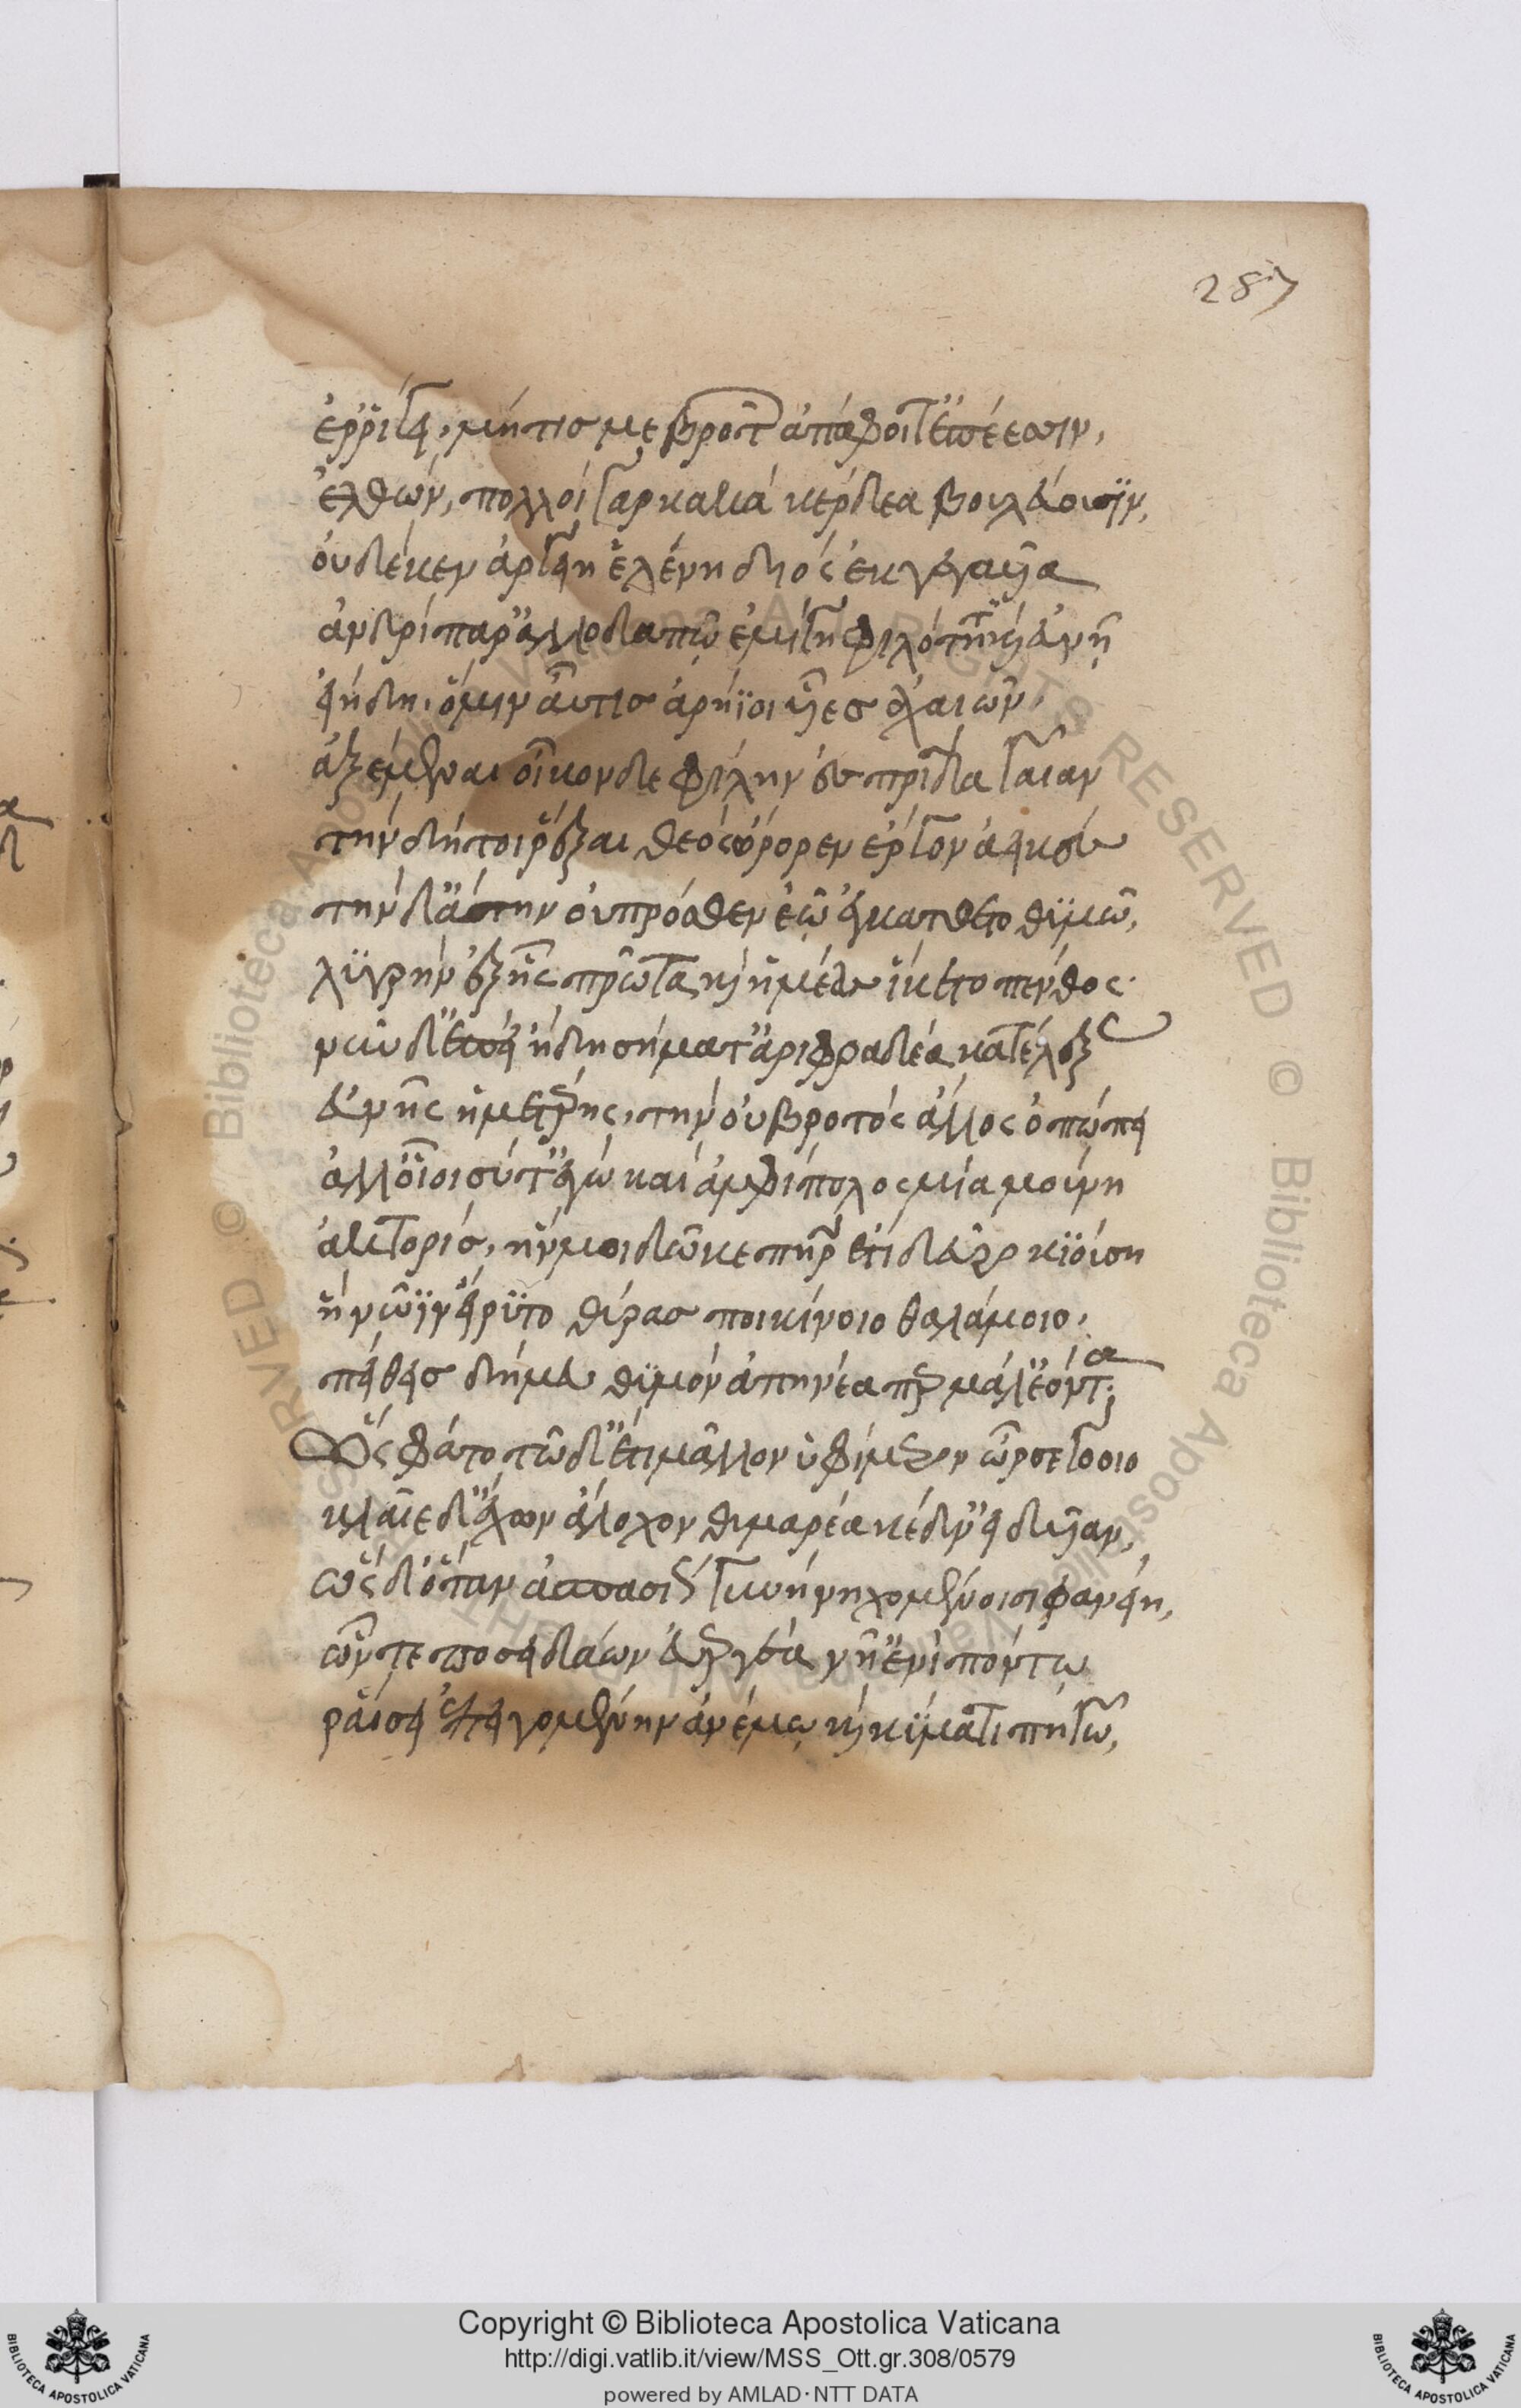 287
ἐρρίγει, μήτις με βροτῶν ἀπάφοιτ' ἐπέεσσιν,
ἐλθών, πολλοὶ γὰρ κακὰ κέρδεα βουλεύουσιν,
οὐδέ κεν ἀργείη ἑλένη διὸς ἐκγεγαυῖα
ἀνδρὶ παρ' ἀλλοδαπῷ ἐμίγη φιλότητι καὶ εὐνῇ
εἰ ἤδη, ὅ μιν αὖτις ἀρήϊοι υἷες ἀχαιῶν,
ἀξέμεναι οἶκον δὲ φίλην ἐς πατρίδα γαῖαν
τὴν δή τοι ῥέξαι θεὸς ὤρορεν ἔργον ἀεικές
τὴν δ' ἄτην οὐ πρόσθεν ἑῷ ἐγκάτθετο θυμῷ,
λυγρὴν ἐξ ἧς πρῶτα καὶ ἡμέας ἵκετο πένθος.
νῦν δ' ἐπεὶ ἤδη σήματ' ἀριφραδέα κατέλεξας
εὐνῆς ἡμετέρης, τὴν οὐ βροτὸς ἄλλος ὀπώπει
ἀλλ' οἶοι σύ τ' ἐγώ καὶ ἀμφίπολος μία μούνη
ἀκτορίς, ἥν μοι δῶκε πατὴρ ἔτι δεῦρο κιούσῃ
ἣ νῶϊν εἴρυτο θύρας πυκινοῦ θαλάμοιο,
πείθεις δή μευ θυμὸν ἀπηνέα περ μάλ' ἐόντα;
Ὣς φάτο τῷ δ' ἔτι μᾶλλον ὑφ' ἵμερον ὦρσε γόοιο
κλαῖε δ' ἔχων ἄλοχον θυμαρέα κεδν' εἰδυῖαν,
ὡς δ' ὅταν ἀσπασίως γῆ νηχομένοισι φανείη,
ὧν τε ποσειδάων εὐεργέα νῆ' ἐνὶ πόντῳ
ῥαίσῃ ἐπειγομένην ἀνέμῳ καὶ κύματι πηγῷ,
Copyright © Biblioteca Apostolica Vaticana
http://digi.vatlib.it/view/MSS_Ott.gr.308/0579
powered by AMLAD·NTT DATA